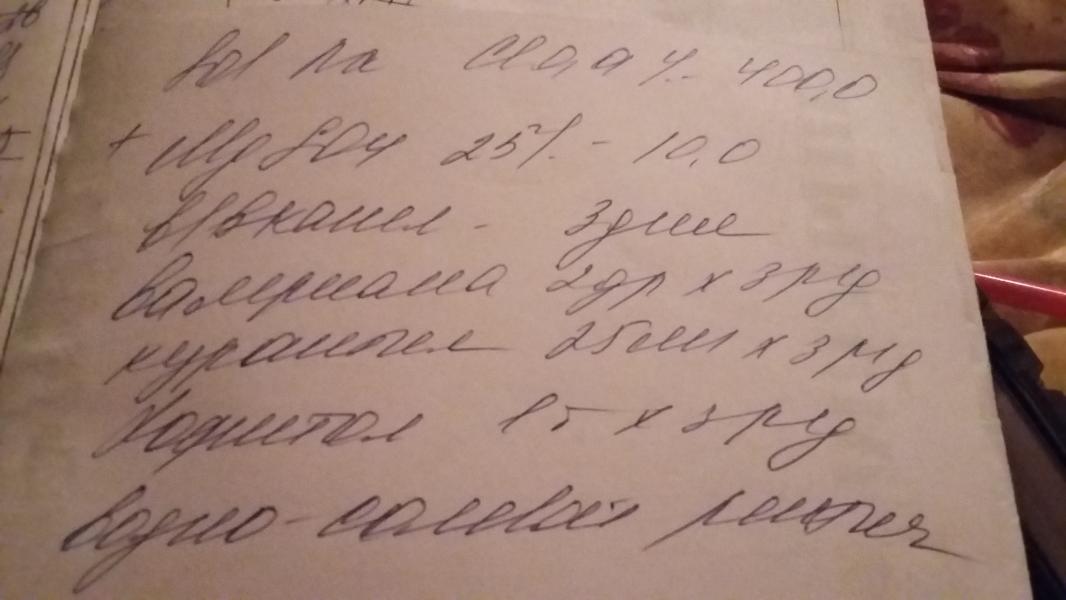 Sol Na Cl 0,9 % - 400,0
+ MgSO4 25% - 10,0
в/в капел - 3 дня
валериана 2др х 3 р/д
курантил 25мг х 3 р/д
Хофитол 1т х 3 р/д
водно-солевой режим